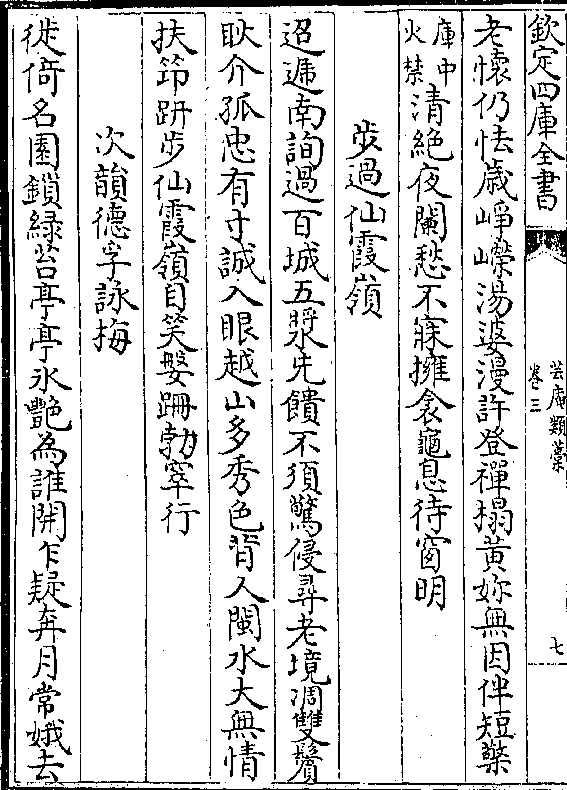 欽定四庫全書
芸庵類藁
卷三
七
老懷仍怯歲崢嶸湯婆漫許登禪榻黃妳無因伴短檠
庫中
火禁
清絶夜闌愁不寐擁衾龜息待窗明
步過仙霞嶺
迢遞南詢過百城五漿先饋不須驚侵尋老境凋雙鬢
耿介孤忠有寸誠入眼越山多秀色背人閩水大無情
扶筇跰步仙霞嶺自笑媻跚勃窣行
次韻德孚詠梅
徙倚名園鎖緑苔亭亭氷艷為誰開乍疑奔月常娥去